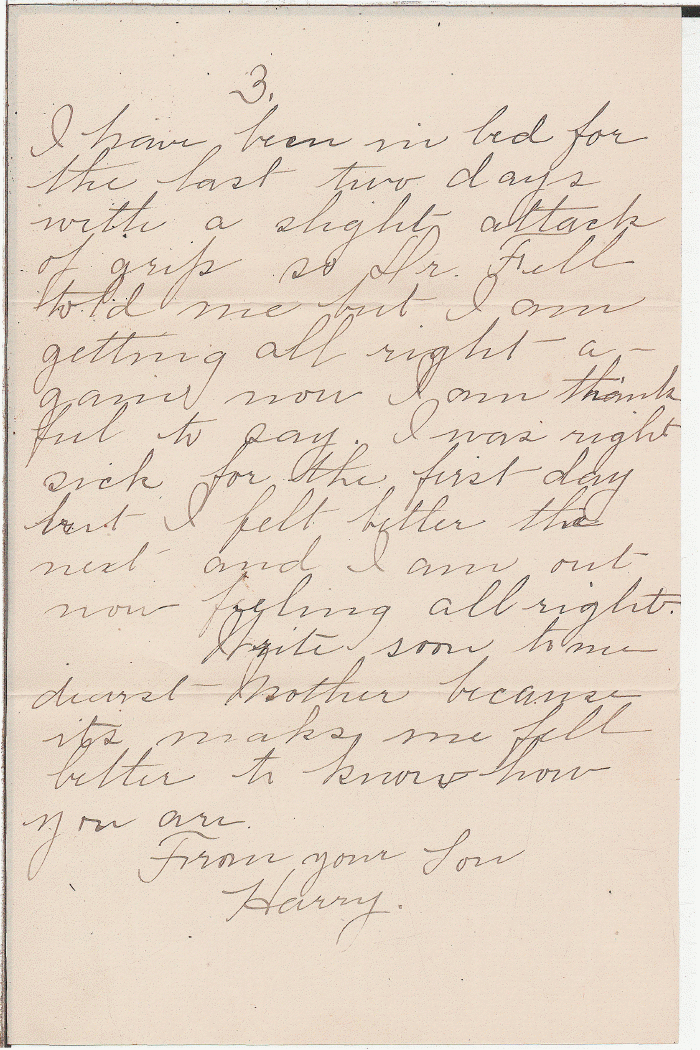 3.
I have been in bed for
the last two days
with a slight attack
of grip so Dr. Fell
told me but I am
getting all right a-
gain now I am thank
ful to say. I was right
sick for the first day
but I felt better the
next and I am out
now feeling all right.
Write soon to me
dearst Mother because
its maks me fell
better to know how
you are.
From your Son
Harry.